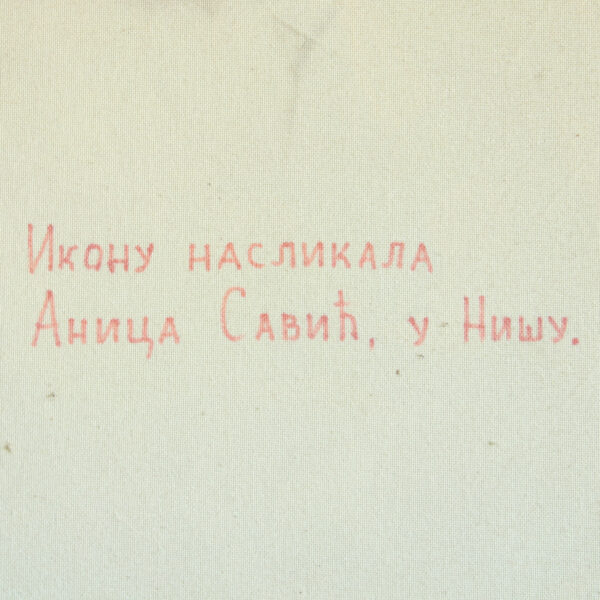 Икону насликала
Аница Савић, у Нишу.